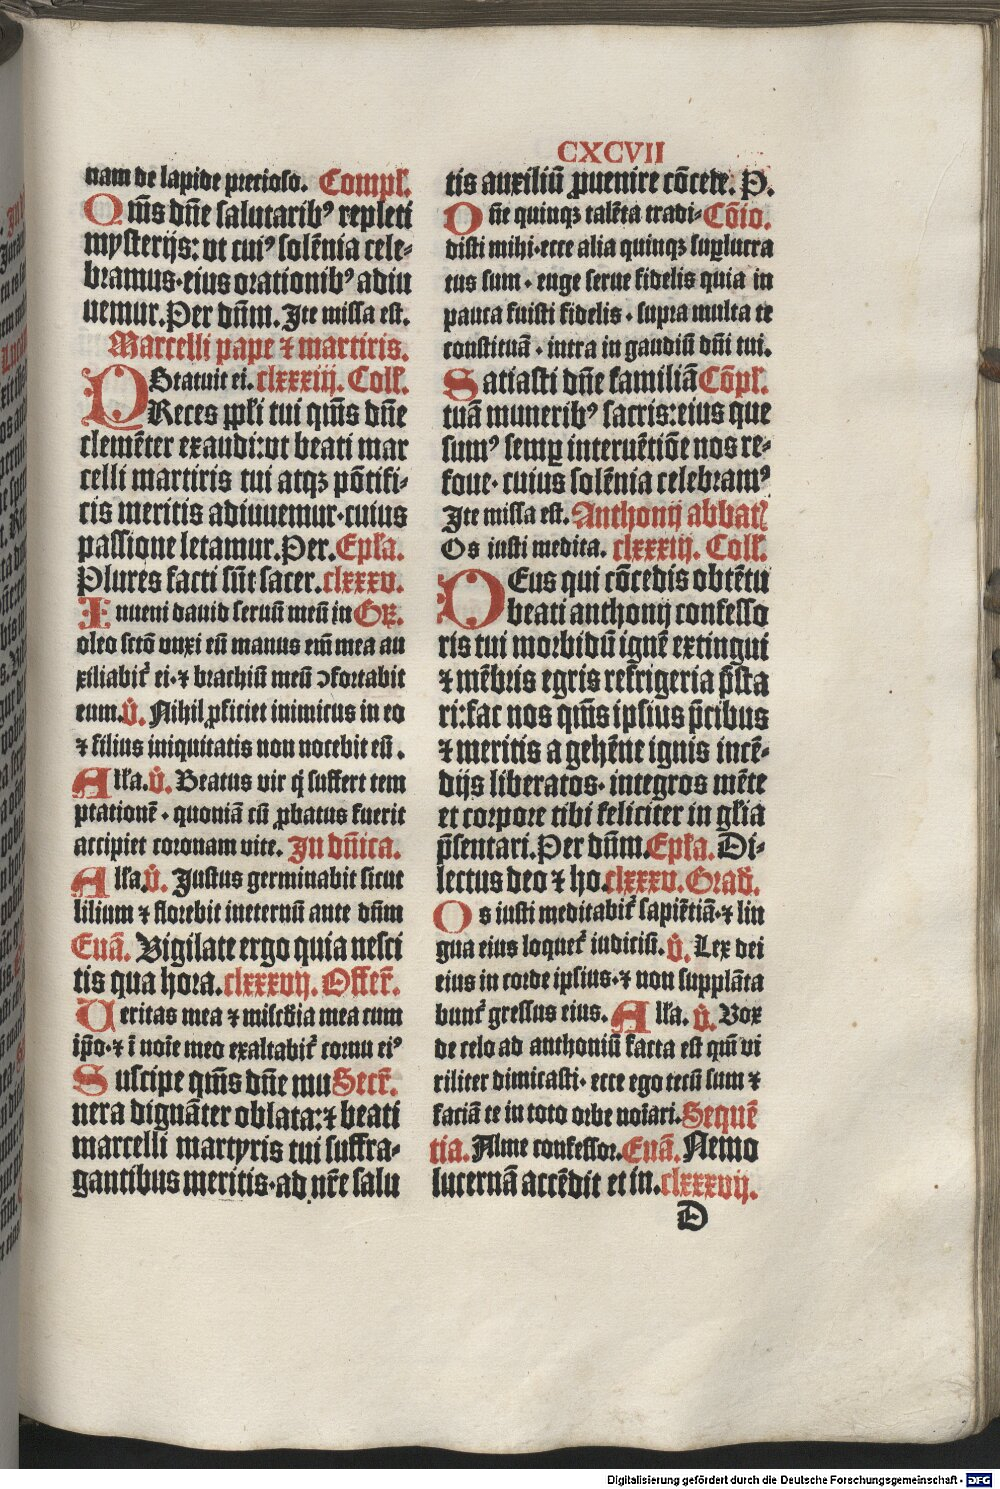 CXCVII
nam de lapide precioso. Compl'.
Qm̄s dn̄e salutarib⁹ repleti
mysterijs: vt cui⁹ solēnia cele-
bramus·eius orationib⁹ adiu
uemur. Per dn̄m. Ite missa est.
Marcelli pape ⁊ martiris.
Statuit ei. clxxxiij. Coll'.
PReces ppl'i tui qm̄s dn̄e
clemēter exaudi: vt beati mar
celli martiris tui atqꝫ pōtifi-
cis meritis adiuuemur·cuius
passione letamur. Per. Epl'a.
Plures facti sūt sacer. clxxxv.
Inueni dauid seruū meū in GR.
oleo sctō vnxi eū manus em̄ mea au
xiliabit' ei·⁊ brachiū meū ɔfortabit
eum. V̊. Nihil ꝓficiet inimicus in eo
⁊ filius iniquitatis non nocebit eū.
All'a. V̊. Beatus vir q̄ suffert tem
ptationē·quoniā cū ꝓbatus fuerit
accipiet coronam vite. In dn̄ica.
All'a. V̊. Justus germinabit sicut
lilium ⁊ florebit ineternū ante dn̄m
Euā. Vigilate ergo quia nesci
tis qua hora. clxxxvij. Offer̄.
Veritas mea ⁊ mīscdia mea cum
ip̄o·⁊ ī noīe meo exaltabit' cornu ei⁹
Suscipe qm̄s dn̄e mu Secr̄.
nera dignāter oblata: ⁊ beati
marcelli martyris tui suffra-
gantibus meritis·ad nr̄e salu
tis auxiliū ꝓuenire cōcede. P.
Dn̄e quinqꝫ talēta tradi- Cōio.
disti mihi·ecce alia quinqꝫ suꝑlucra
tus sum·euge serue fidelis quia in
pauca fuisti fidelis·supra multa te
constituā·intra in gaudiū dn̄i tui.
Satiasti dn̄e familiā Cōpl'.
tuā munerib⁹ sacris: eius que
sum⁹ semꝑ interuētiōe nos re-
foue·cuius solēnia celebram⁹
Ite missa est. Anthonij abbat'
Os iusti medita. clxxxiij. Coll'.
DEus qui cōcedis obtētu
beati anthonij confesso
ris tui morbidū ignē extingui
⁊ mēbris egris refrigeria p̄sta
ri: fac nos qm̄s ipsius p̄cibus
⁊ meritis a gehēne ignis incē-
dijs liberatos·integros mēte
et corpore tibi feliciter in gl'ia
p̄sentari. Per dn̄m. Epl'a. Di-
lectus deo ⁊ ho. clxxxv. Grad̄.
Os iusti meditabit' sapiētiā·⁊ lin
gua eius loquet' iudiciū. V̊. Lex dei
eius in corde ipsius·⁊ non supplāta
bunt' gressus eius. All'a. V̊. Vox
de celo ad anthoniū facta est qm̄ vi
riliter dimicasti·ecce ego tecū sum ⁊
faciā te in toto orbe noīari. Sequē
tia. Alme confessor. Euā. Nemo
lucernā accēdit et in. clxxxvij.
D
Digitalisierung gefördert durch die Deutsche Forschungsgemeinschaft - DFG